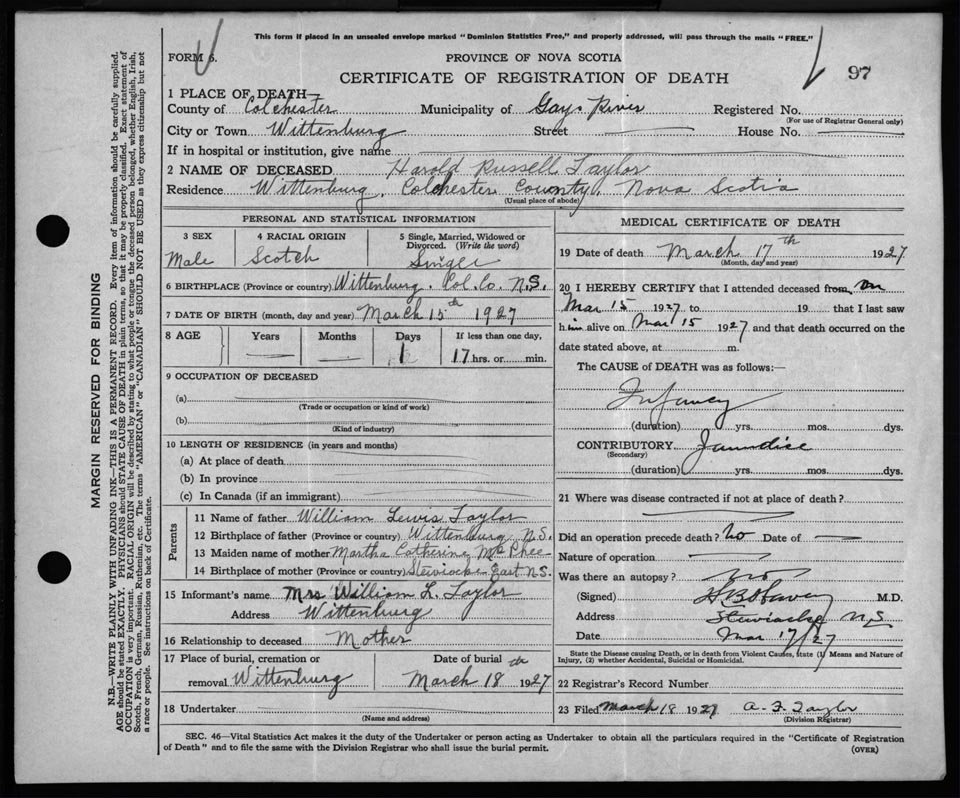 This form if placed in an unsealed envelope marked "Dominion Statistics Free," and properly addressed, will pass through the mails "FREE."
FORM 6.
PROVINCE OF NOVA SCOTIA
97
CERTIFICATE OF REGISTRATION OF DEATH
1 PLACE OF DEATH—
County of Colchester Municipality of Gays River Registered No.
(For use of Registrar General only)
City or Town Wittenburg Street House No.
If in hospital or institution, give name
2 NAME OF DECEASED Harold Russell Taylor
Residence Wittenburg, Colchester County, Nova Scotia
(Usual place of abode)
PERSONAL AND STATISTICAL INFORMATION
3 SEX
Male
4 RACIAL ORIGIN
Scotch
5 Single, Married, Widowed or Divorced. (Write the word)
Singel
6 BIRTHPLACE (Province or country) Wittenburg. Col. Co. N.S.
7 DATE OF BIRTH (month, day and year) March 15th 1927
8 AGE Years Months Days If less than one day,
1 17 hrs. or min.
9 OCCUPATION OF DECEASED
(a)
(Trade or occupation or kind of work)
(b)
(Kind of industry)
10 LENGTH OF RESIDENCE (in years and months)
(a) At place of death
(b) In province
(c) In Canada (if an immigrant)
Parents
11 Name of father William Lewis Taylor
12 Birthplace of father (Province or country) Wittenburg N.S.
13 Maiden name of mother Martha Catherine McPhee
14 Birthplace of mother (Province or country) Stewiacke East N.S.
15 Informant's name Mrs William L. Taylor
Address Wittenburg
16 Relationship to deceased Mother
17 Place of burial, cremation or Date of burial
removal Wittenburg March 18th 1927
18 Undertaker
(Name and address)
MEDICAL CERTIFICATE OF DEATH
19 Date of death March 17th 1927
(Month, day and year)
20 I HEREBY CERTIFY that I attended deceased from on
Mar 15 1927 to 19 that I last saw
him alive on Mar 15 1927 and that death occurred on the
date stated above, at m.
The CAUSE of DEATH was as follows:—
Infancy
(duration) yrs. mos. dys.
CONTRIBUTORY Jaundice
(Secondary)
(duration) yrs. mos. dys.
21 Where was disease contracted if not at place of death?
Did an operation precede death? No Date of
Nature of operation
Was there an autopsy? no
(Signed) M.D.
Address Stewiacke N.S
Date Mar 17/27
State the Disease causing Death, or in death from Violent Causes, state (1) Means and Nature of
Injury, (2) whether Accidental, Suicidal or Homicidal.
22 Registrar's Record Number
23 Filed March 18 1927 A. F. Taylor
(Division Registrar)
SEC. 46—Vital Statistics Act makes it the duty of the Undertaker or person acting as Undertaker to obtain all the particulars required in the "Certificate of Registration
of Death" and to file the same with the Division Registrar who shall issue the burial permit.
(OVER)
MARGIN RESERVED FOR BINDING
N.B.—WRITE PLAINLY WITH UNFADING INK—THIS IS A PERMANENT RECORD. Every item of information should be carefully supplied.
AGE should be stated EXACTLY. PHYSICIANS should STATE CAUSE OF DEATH in plain terms, so that it may be properly classified. Exact statement of
OCCUPATION is very important. RACIAL ORIGIN will be described by stating to what people or tongue the deceased person belonged, whether English, Irish,
Scotch, French, German, Russian, Ruthenian, etc. The terms "AMERICAN" or "CANADIAN" SHOULD NOT BE USED as they express citizenship but not
a race or people. See instructions on back of Certificate.